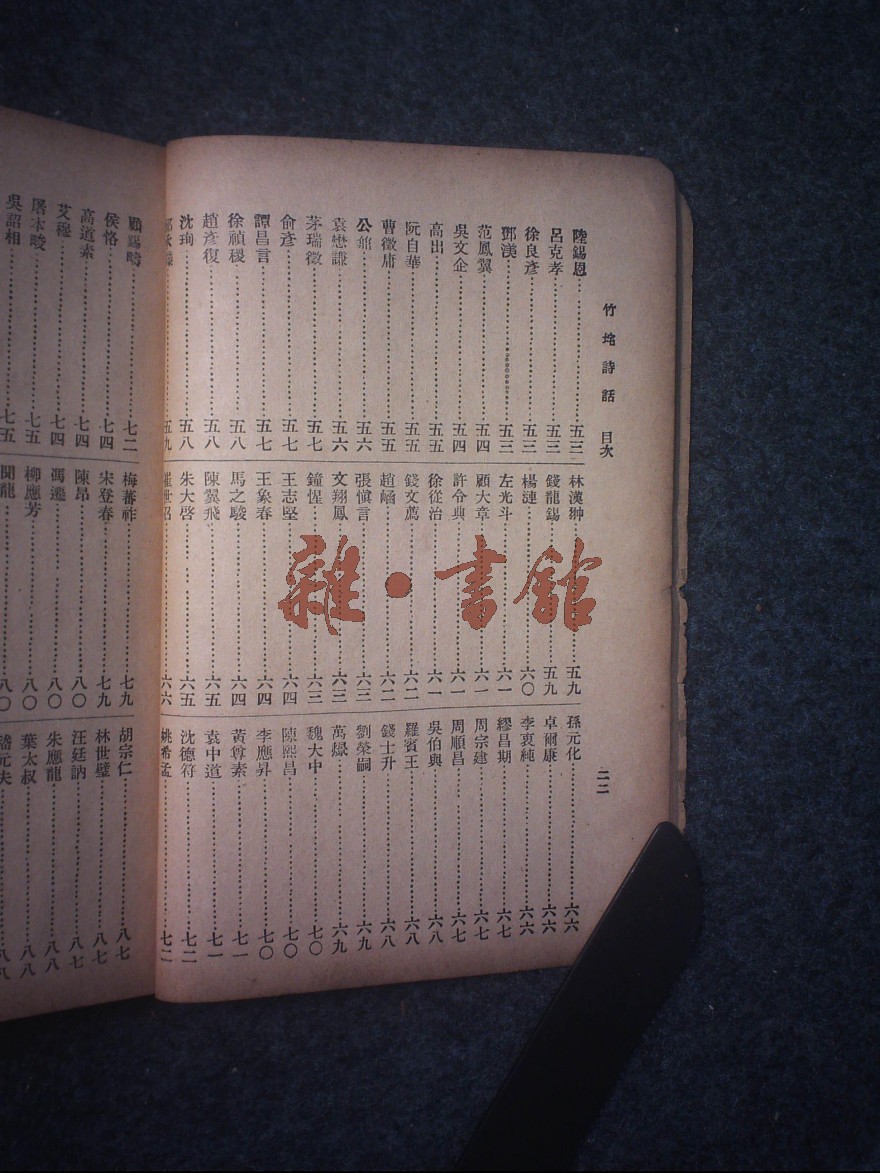 竹垞詩話 目次
二二
陸錫恩 五三
呂克孝 五三
徐良彥 五三
鄧渼 五三
范鳳翼 五四
吳文企 五四
高出 五五
阮自華 五五
曹徵庸 五五
公鼐 五六
袁懋謙 五六
茅瑞徵 五七
俞彥 五七
譚昌言 五七
徐禎稷 五八
趙彥復 五八
沈珣 五八
五九
林漢翀 五九
錢龍錫 五九
楊漣 六〇
左光斗 六一
顧大章 六一
許令典 六一
徐從治 六一
錢文薦 六二
趙崡 六二
張愼言 六三
文翔鳳 六三
鐘惺 六三
王志堅 六四
王象春 六四
馬之駿 六四
陳翼飛 六五
朱大啓 六五
崔世召 六六
孫元化 六六
卓爾康 六六
李衷純 六六
繆昌期 六七
周宗建 六七
周順昌 六七
吳伯與 六八
羅賓王 六八
錢士升 六八
劉榮嗣 六九
萬燝 六九
魏大中 七〇
陳熙昌 七〇
李應昇 七〇
黃尊素 七一
袁中道 七一
沈德符 七二
姚希孟 七二
顧錫疇 七二
侯恪 七四
高道素 七四
艾穆 七四
屠本畯 七五
吳詔相 七五
梅蕃祚 七九
宋登春 七九
陳昂 八〇
馮遷 八〇
柳應芳 八〇
聞龍 八〇
胡宗仁 八七
林世璧 八七
汪廷訥 八八
朱應龍 八八
葉太叔 八八
潘元夫 八八
雜·書館